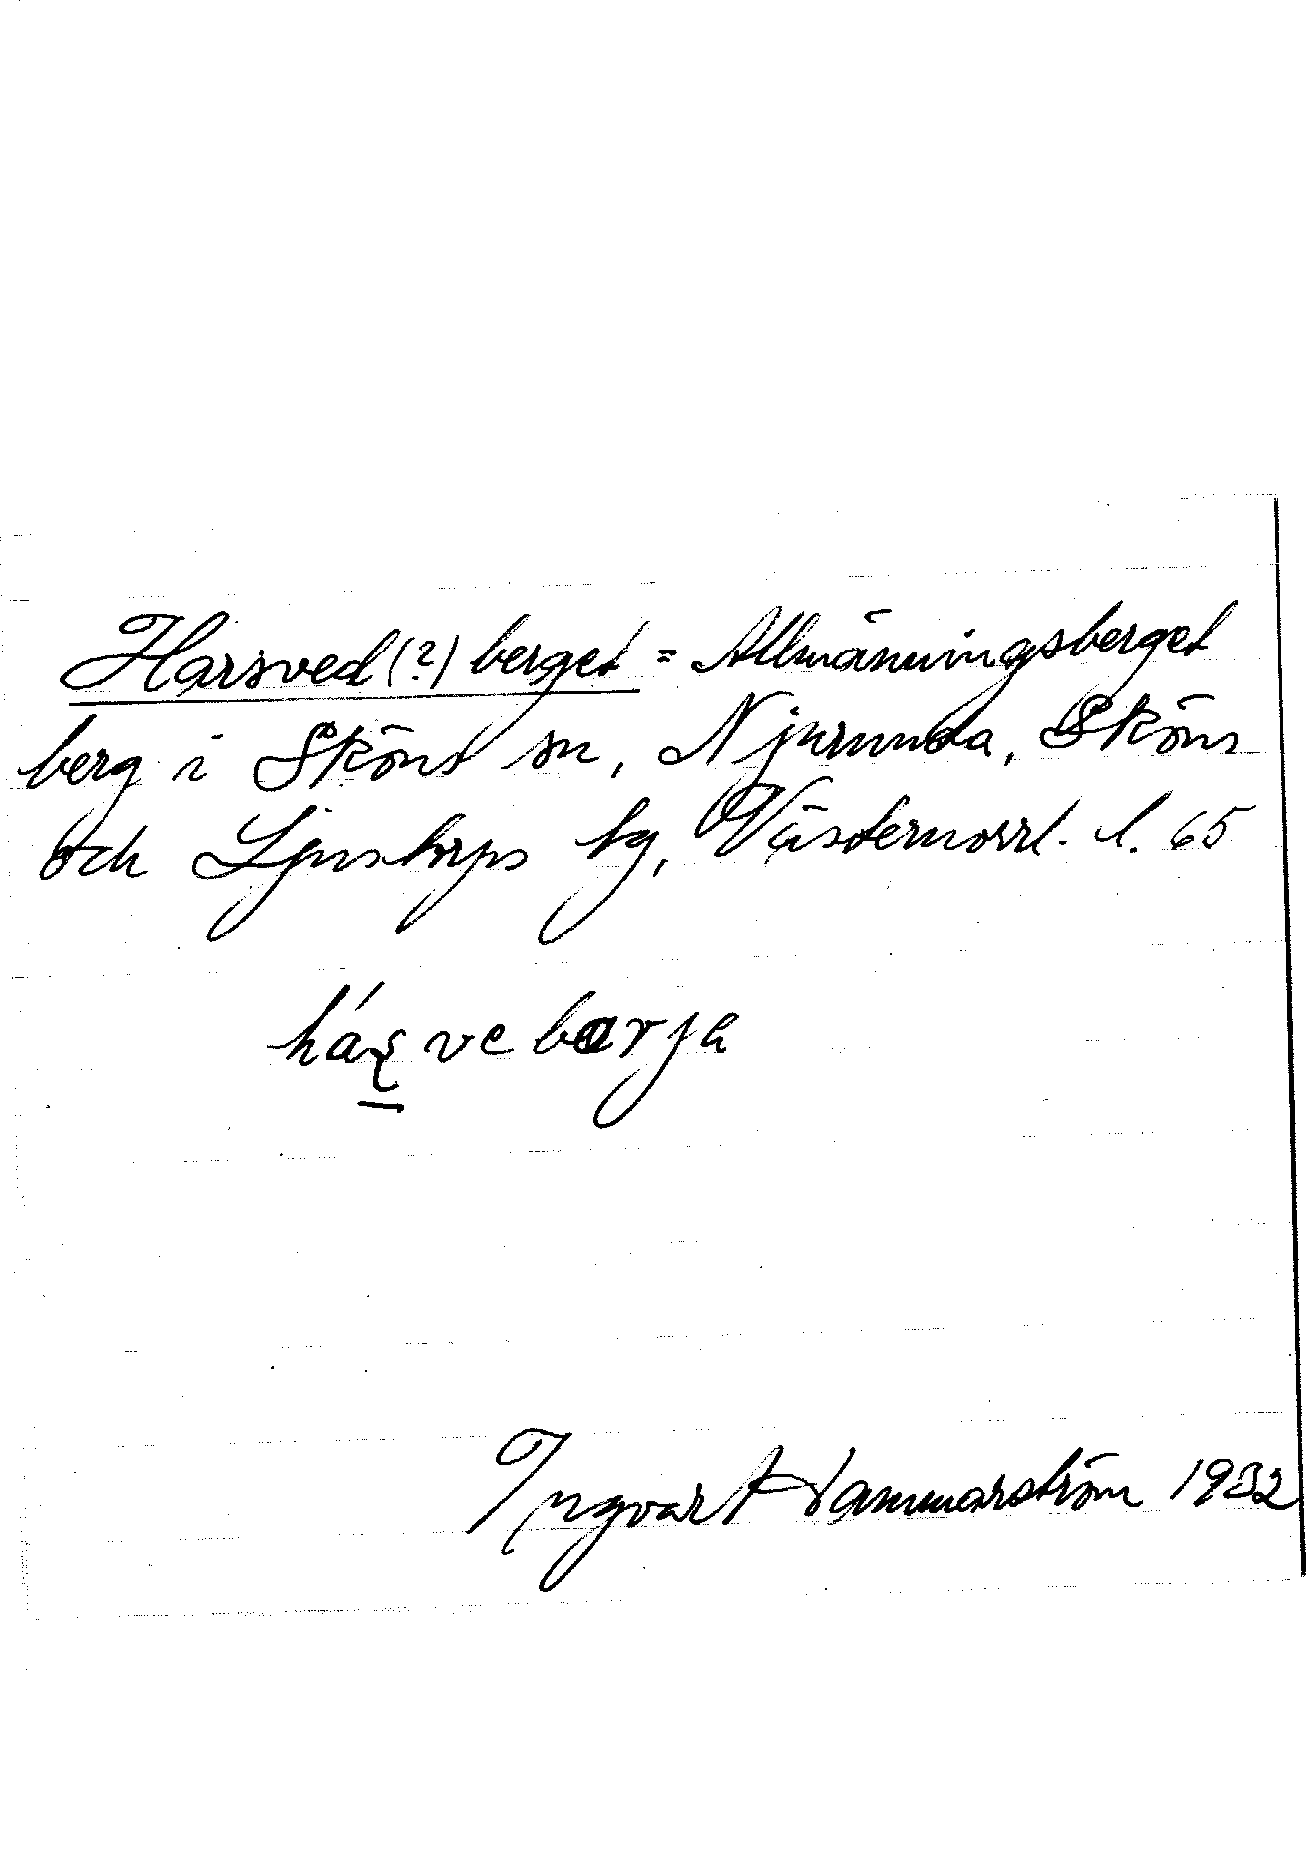 Harsved(?) berget = Allmänningsberget
berg i Sköns sn, Njurunda, Sköns
och Ljustorps tg, Västernorrl. l. 65
Ingvar Hammarström 1932